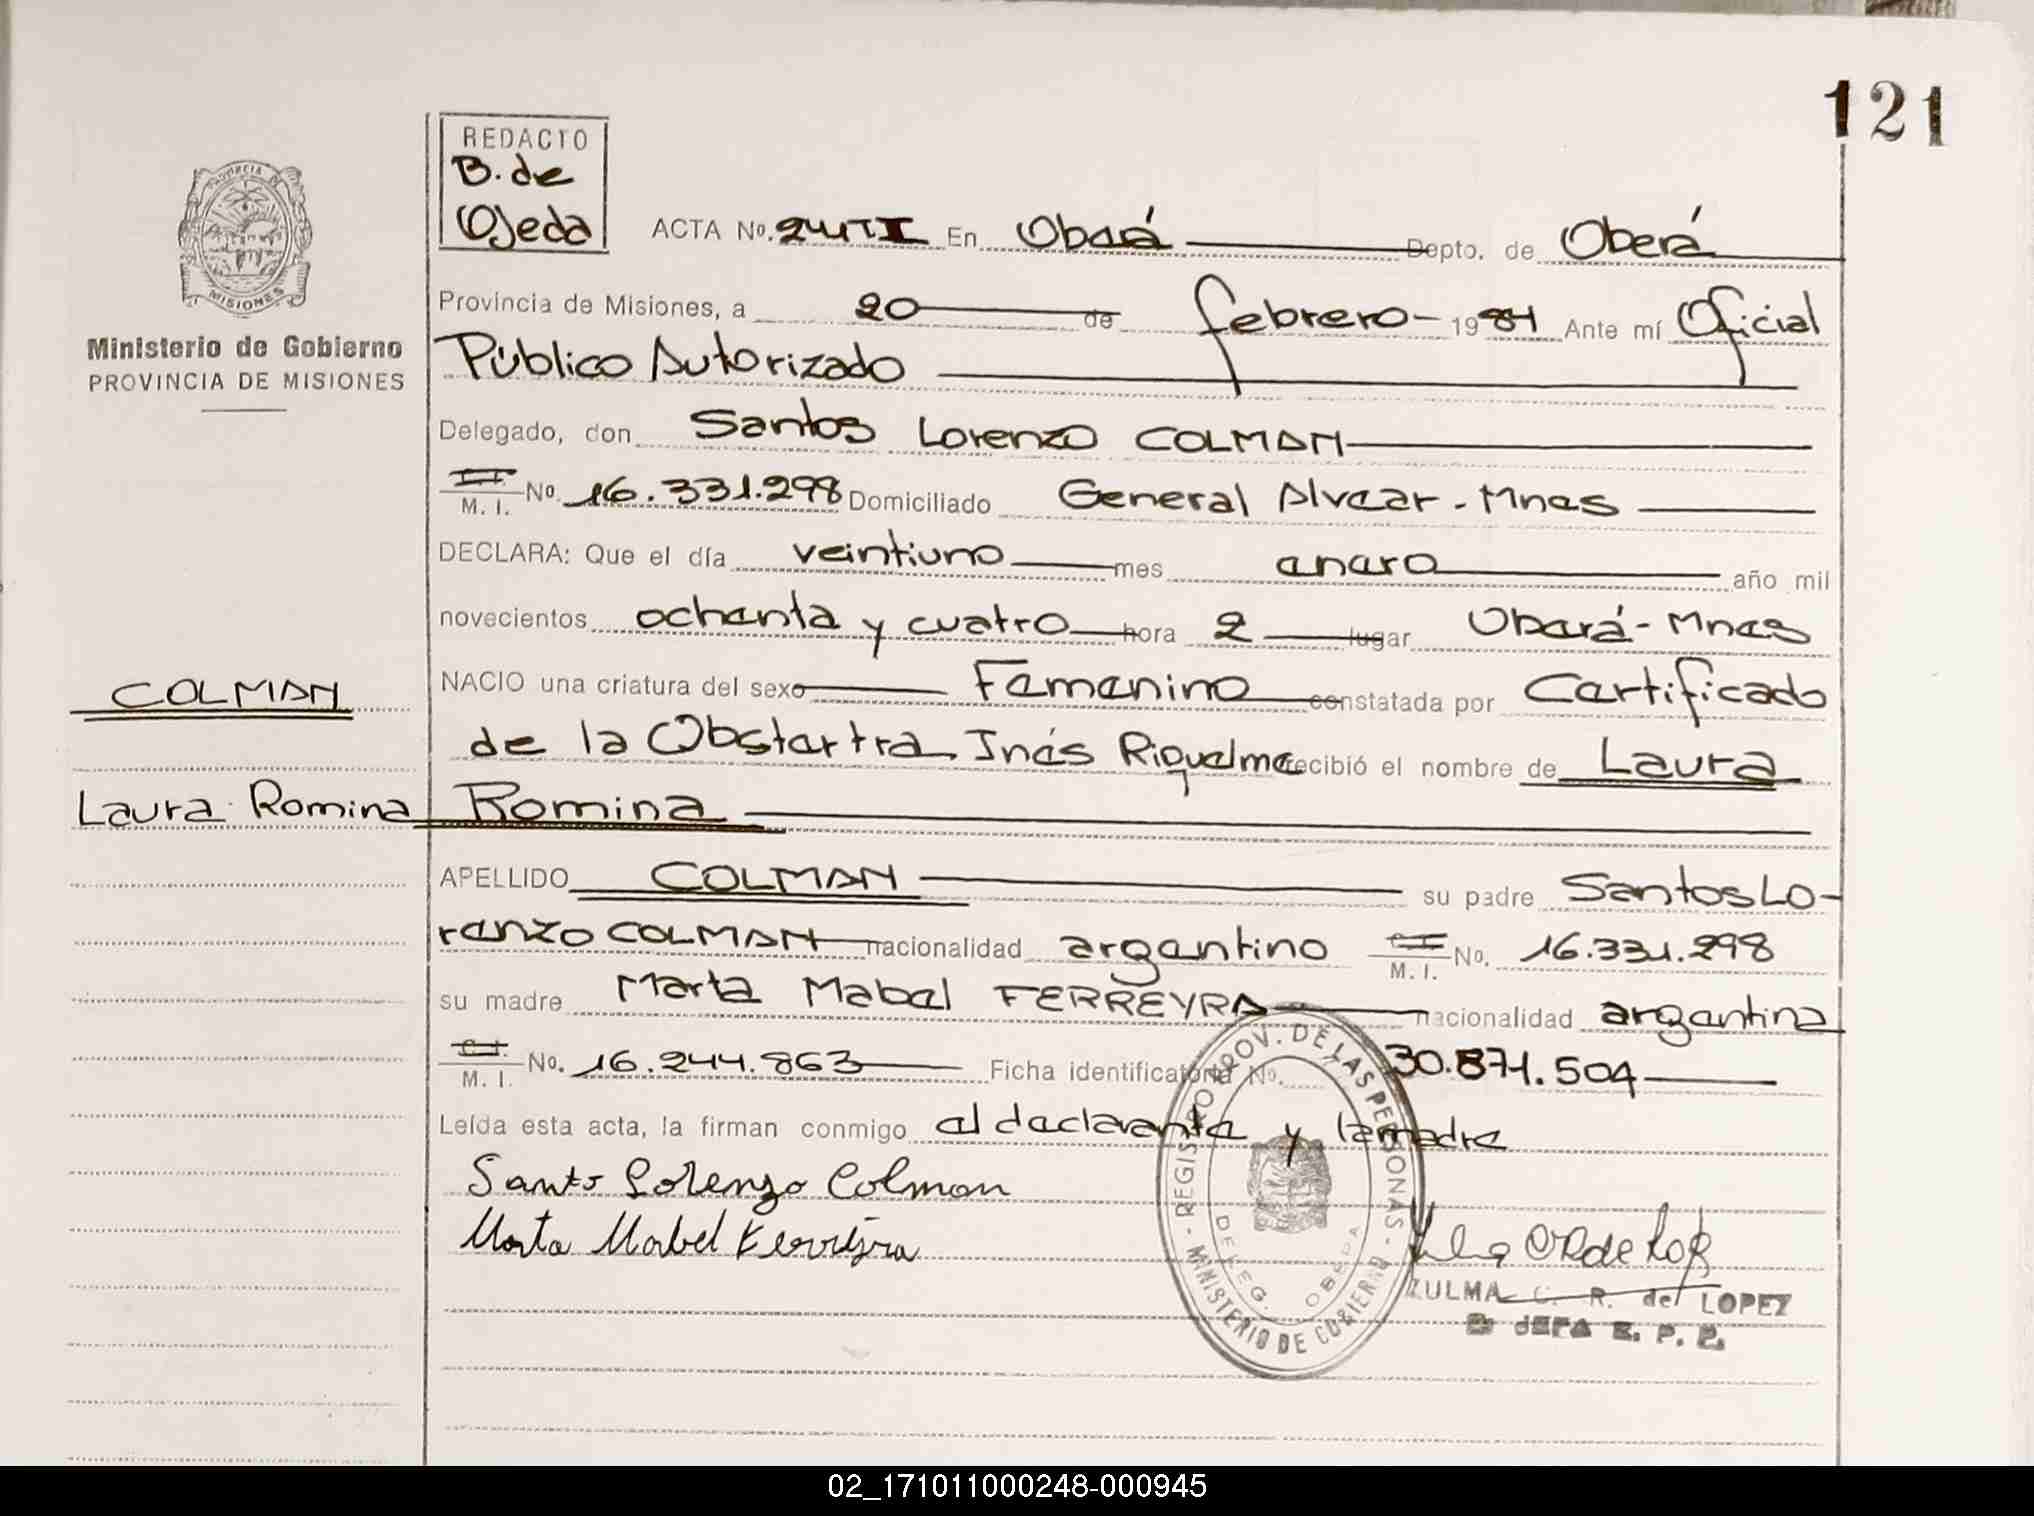 121
REDACTO
B. de
Ojeda
ACTA No. En Oberá Depto. de Oberá
PROVINCIA DE
MISIONES
Ministerio de Gobierno
PROVINCIA DE MISIONES
Provincia de Misiones, a 20 de febrero 1984 Ante mí Oficial
Público Autorizado
Delegado, don Santos Lorenzo COLMAN
C. I. M. I. No. 16.331.298 Domiciliado General Alvear - Mnes
DECLARA: Que el día veintiuno mes enero año mil
novecientos ochenta y cuatro hora 2 lugar Oberá - Mnes
NACIO una criatura del sexo Femenino constatada por Certificado
de la Obstetra Inés Riquelme recibió el nombre de Laura
Romina
COLMAN
Laura Romina
APELLIDO COLMAN su padre Santos Lo-
renzo COLMAN nacionalidad argentino C. I. M. I. No. 16.331.298
su madre Marta Mabel FERREYRA nacionalidad argentina
C. I. M. I. No. 16.244.863 Ficha identificatoria No. 30.871.504
Leída esta acta, la firman conmigo el declarante y la madre
Santo Lorenzo Colman
Marta Mabel Ferreyra
REGISTRO PROV. DE LAS PERSONAS - MINISTERIO DE GOBIERNO -
DELEG. OBERA
ZULMA C. R. de LOPEZ
02_171011000248-000945